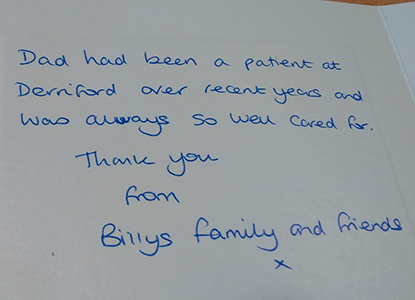 Dad had been a patient at
Derriford over recent years and
was always so well cared for.
Thank you
from
Billys family and friends
x